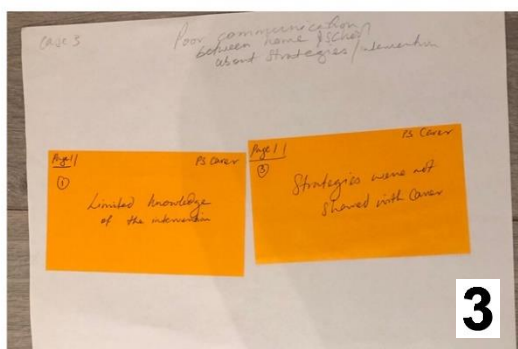 Case 3
Poor communication
between home & School
about Strategies/intervention
Page 11
PS Carer
①
Limited knowledge
of the intervention
Page 11
PS Carer
③
Strategies were not
shared with Carer
3